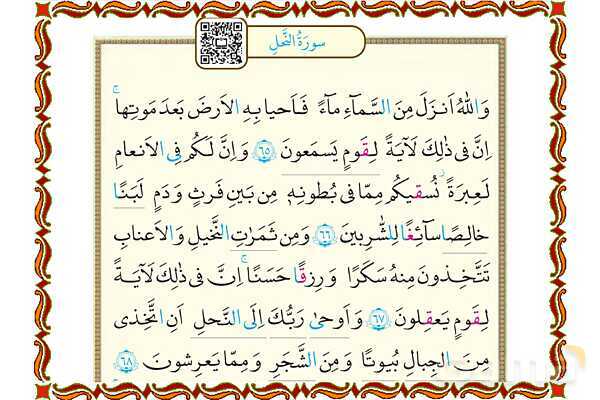 سورَةُ النَّحلِ
وَاللّٰهُ اَنزَلَ مِنَ السَّمآءِ مآءً فَاَحيا بِهِ الاَرضَ بَعدَ مَوتِها ۚ
اِنَّ فی ذٰلِكَ لَآيَةً لِقَومٍ يَسمَعونَ ﴿٦٥﴾ وَ اِنَّ لَكُم فِی الاَنعامِ
لَعِبرَةً ۖ نُسقيكُم مِمّا فی بُطونِهٖ مِن بَينِ فَرثٍ وَ دَمٍ لَبَنًا
خالِصًا سآئِغًا لِلشّٰرِبينَ ﴿٦٦﴾ وَ مِن ثَمَرٰتِ النَّخيلِ وَ الاَعنابِ
تَتَّخِذونَ مِنهُ سَكَرًا وَ رِزقًا حَسَنًا ۚ اِنَّ فی ذٰلِكَ لَآيَةً
لِقَومٍ يَعقِلونَ ﴿٦٧﴾ وَ اَوحیٰ رَبُّكَ اِلَی النَّحلِ اَنِ اتَّخِذی
مِنَ الجِبالِ بُيوتًا وَ مِنَ الشَّجَرِ وَ مِمّا يَعرِشونَ ﴿٦٨﴾